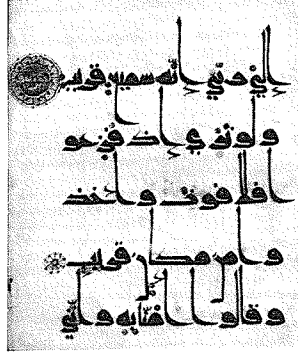 إلي ربي إنه سميع قريب
ولو ترى إذ فزعو
ا فلا فوت وأخذ
وا من مكان قريب
وقالوا آمنا به وأنى